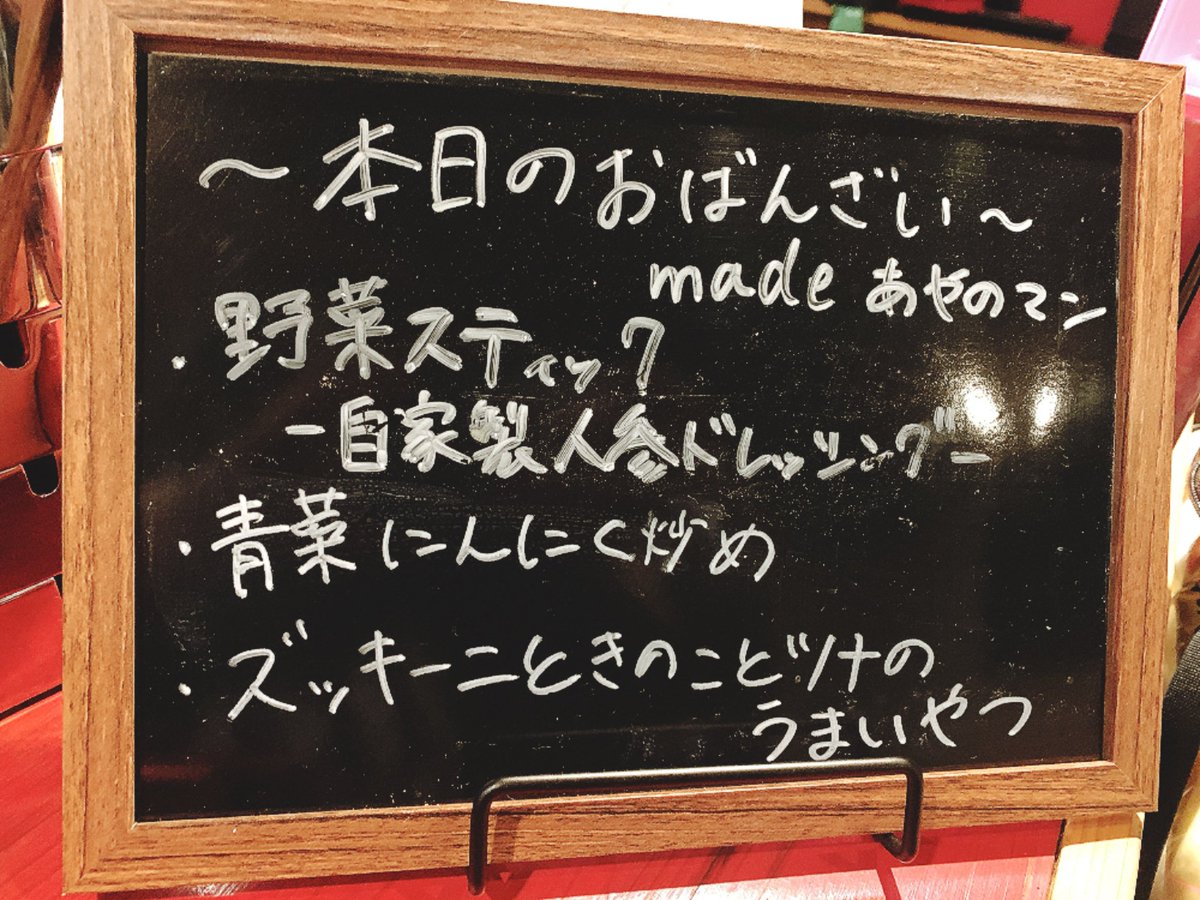 ～本日のおばんざい～
made あやのマン
・野菜スティック
-自家製人参ドレッシング-
・青菜にんにく炒め
・ズッキーニときのことツナの
うまいやつ